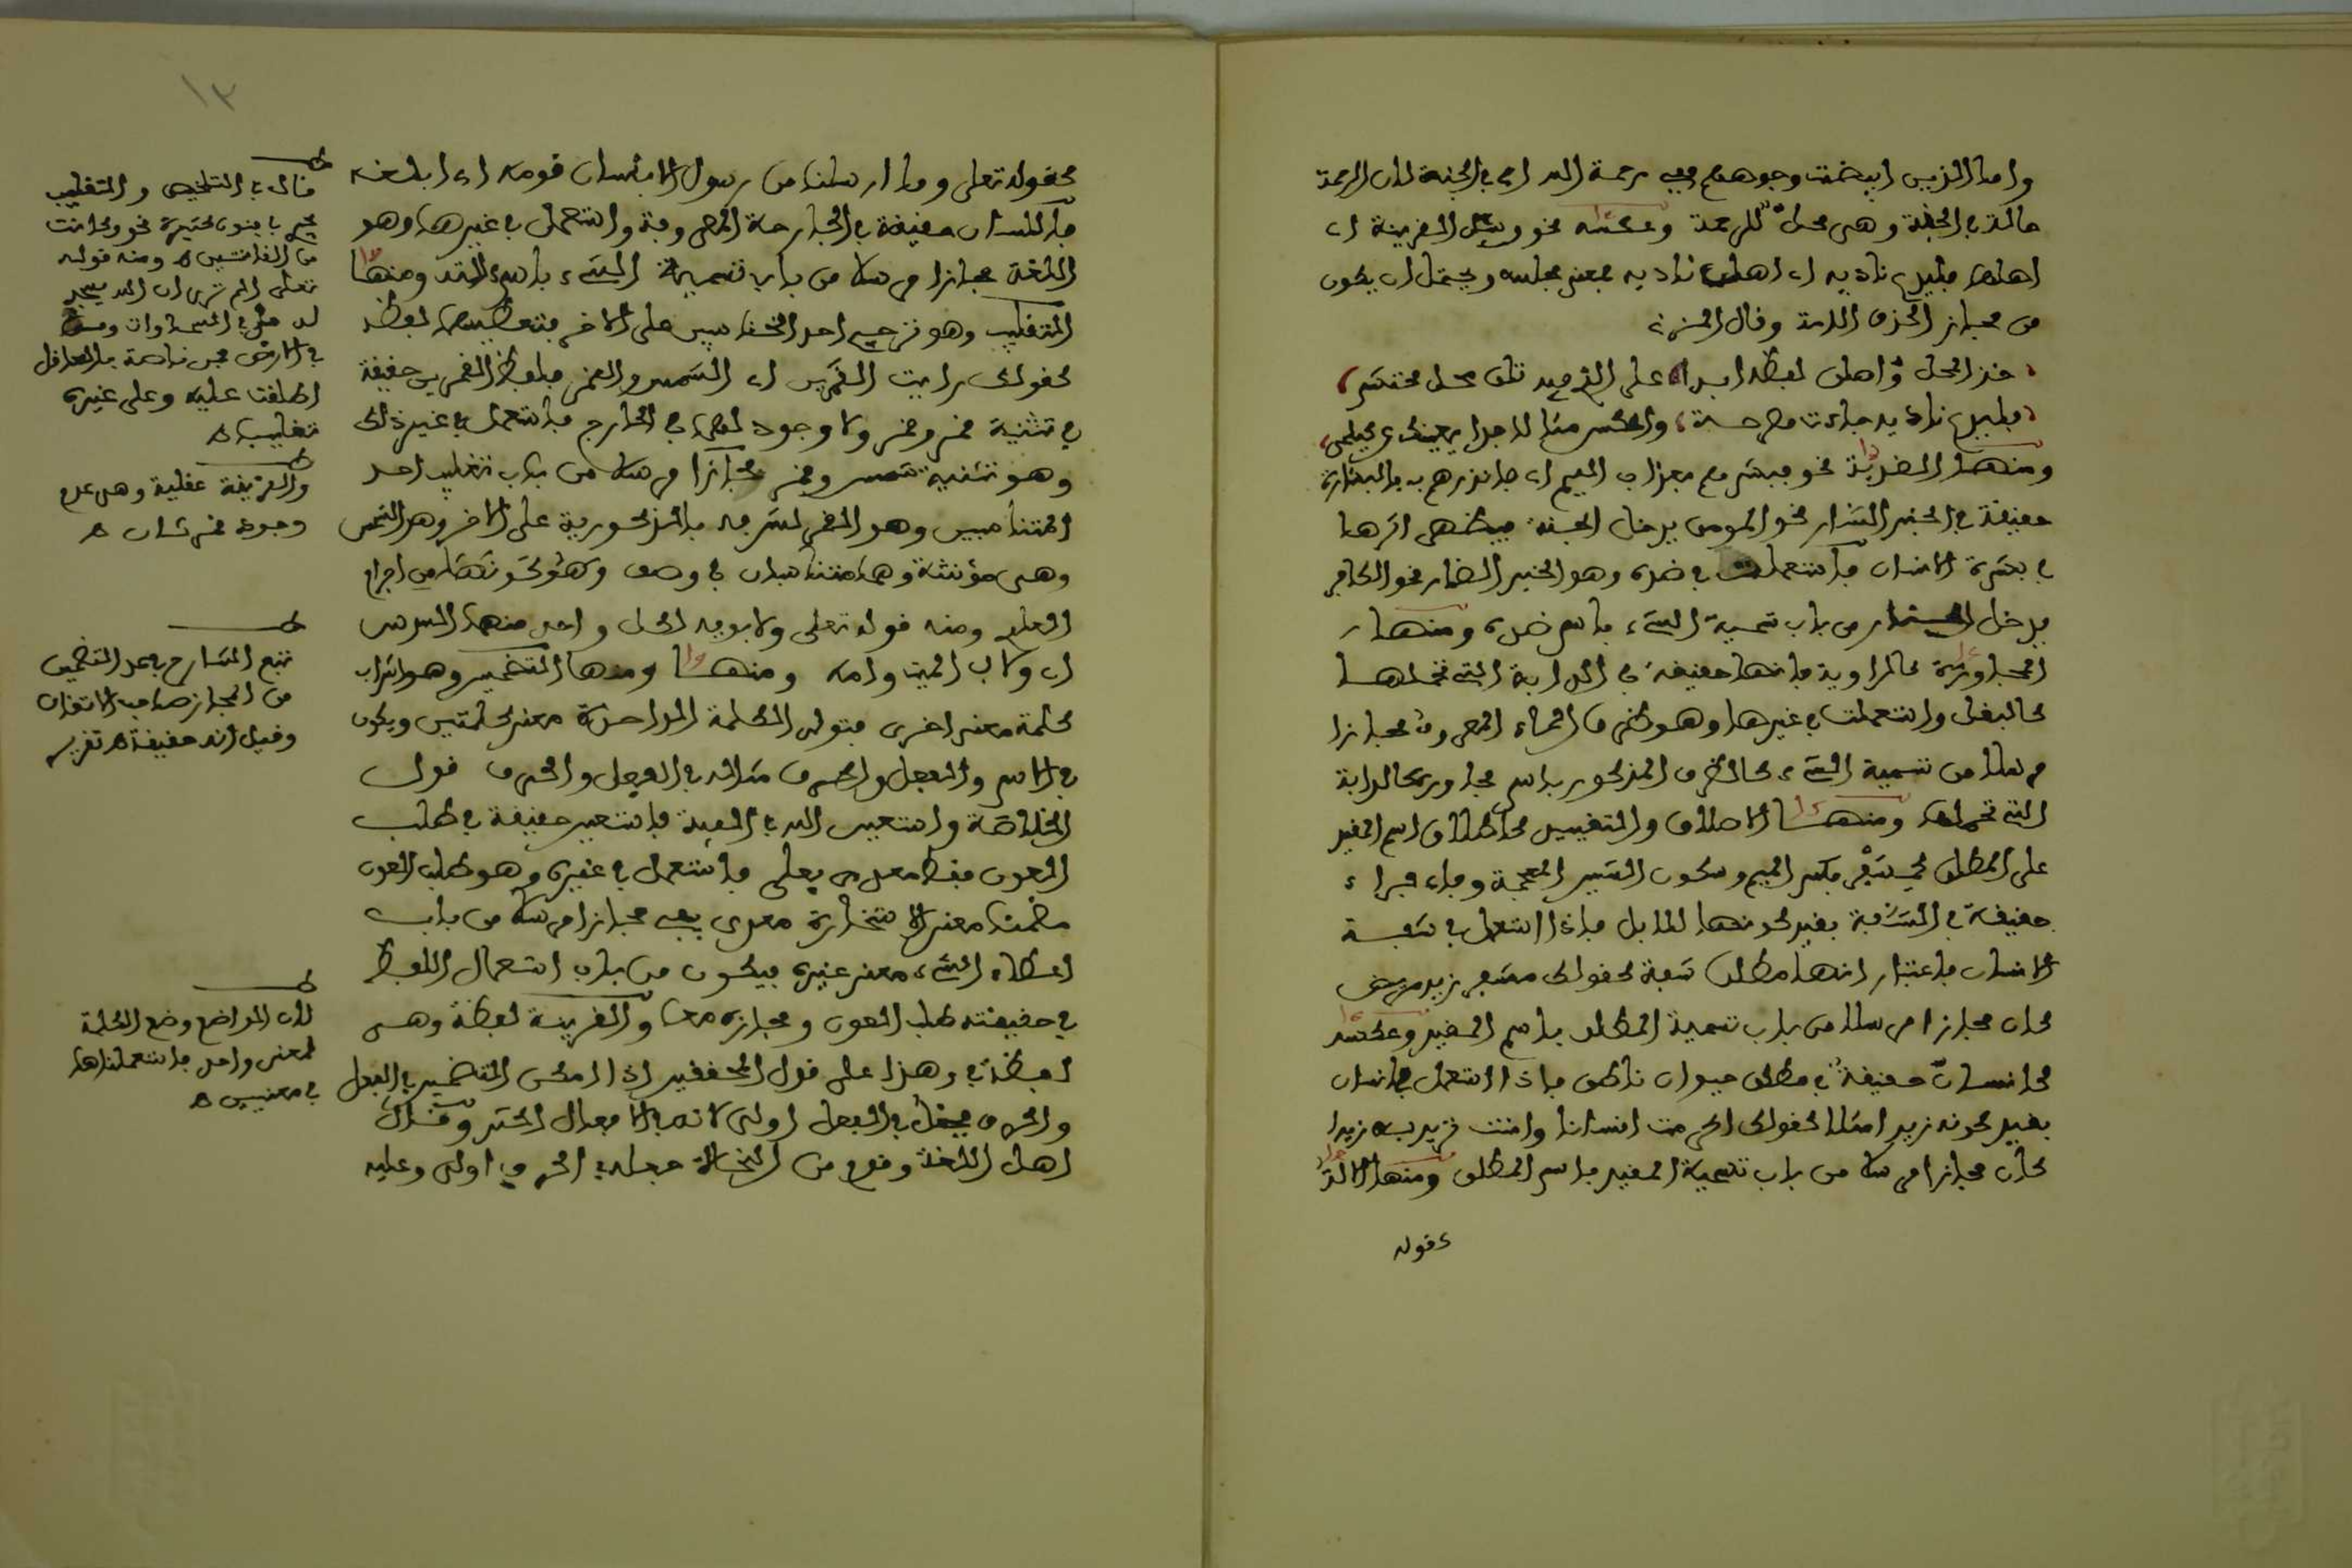 واما الذين ابيضت وجوههم ففي رحمة الله اي في الجنة لان الرحمة
حالة في الجنة وهي محل للرحمة وعكسه نحو وسئل القرية اي
اهلها فليدع ناديه اي اهل ناديه بمعنى مجلسه ويحتمل ان يكون
من مجاز الحذف اللامة وقال
خذ المحل واهل لفظه ابدا على تلك محل
فليدع ناديه جاءت
ومنها الضدية نحو فبشرهم بعذاب اليم اي فانذرهم به فالبشارة
حقيقة في الخبر السار نحو المومن يدخل الجنة فيظهر اثرها
في بشرة الانسان فاستعملت في ضده وهو الخبر الضار نحو الكافر
يدخل النار من باب تسمية الشيء باسم ضده ومنها
المجاورة كالراوية فانها حقيقة في الدابة التي تحملها
كالبغل واستعملت في غيرها وهو ظرف الماء المعروف مجازا
مرسلا من تسمية الشيء كالظرف المذكور باسم مجاوره كالدابة
التي تحملها ومنها الاطلاق والتقييد كاطلاق اسم المقيد
على المطلق كمشفر بكسر الميم وسكون الشين المعجمة وفاء فراء
حقيقة في الشفة بقيد كونها للابل فاذا استعمل في شفة
الانسان باعتبار انها مطلق شفة كقولك مشفر زيد مريض
كان مجازا مرسلا من باب تسمية المطلق باسم المقيد وعكسه
كانسان حقيقة في مطلق حيوان ناطق فاذا استعمل في انسان
بقيد كونه زيد امثلا كقولك اكرمت انسانا وانت تريد به زيدا
كان مجازا مرسلا من باب تسمية المقيد باسم المطلق ومنها الالة
كقوله
١٣
كقوله تعلى وما ارسلنا من رسول الا بلسان قومه اي بلغة
فاللسان حقيقة في الجارحة المعروفة واستعمل في غيرها وهو
اللغة مجازا مرسلا من باب تسمية الشيء باسم الته ومنها
التغليب وهو ترجيح احد المتناسبين على الاخر فتعطيهما لفظه
كقولك رايت القمرين اي الشمس والقمر فلفظ القمرين حقيقة
في تثنية قمر وقمر ولا وجود لهما في الخارج فاستعمل في غير ذلك
وهو تثنية شمس وقمر مجازا مرسلا من باب تغليب احد
المتناسبين وهو القمر لشرفه بالذكورية على الاخر وهو الشمس
وهي مؤنثة وهما متناسبان في وصف وهو كونهما من اجرام
العلو ومنه قوله تعلى ولابويه لكل واحد منهما السدس
اي ولاب الميت وامه ومنها التضمين وهو اشراب
كلمة معنى اخرى فتودي الكلمة الواحدة معنى كلمتين ويكون
في الاسم والفعل والحرف مثاله في الفعل والحرف قول
الخلاصة واستعين الله في الفية فاستعين حقيقة في طلب
العون فقط معدى بعلى فاستعمل في غيره وهو طلب العون
مضمنا معنى الاستخارة معدى بفي مجازا مرسلا من باب
اعطاء الشيء معنى غيره فيكون من باب استعمال اللفظ
في حقيقته طلب العون ومجازه معا والقرينة لفظة وهي
لفظة في وهذا على قول المحققين اذا امكن التضمين في الفعل
والحرف فجعله في الفعل اولى لانه في الافعال اكثر وقال
اهل اللغة وقوم من النحاة جعله في الحرف اولى وعليه
قال في التلخيص والتغليب
يجري في فنون كثيرة نحو وكانت
من القانتين ه ومنه قوله
تعلى الم تر ان الله يسجد
له من في السماوات ومن
في الارض فمن خاصة بالعاقل
اطلقت عليه وعلى غيره
تغليبا ه
والقرينة عقلية وهي عدم
وجود قمر ثان ه
تبع الشارح في عد التضمين
من المجاز صاحب الاتقان
وقيل انه حقيقة ه تقرير
لان الواضع وضع الكلمة
لمعنى واحد فاستعملناها
في معنيين ه